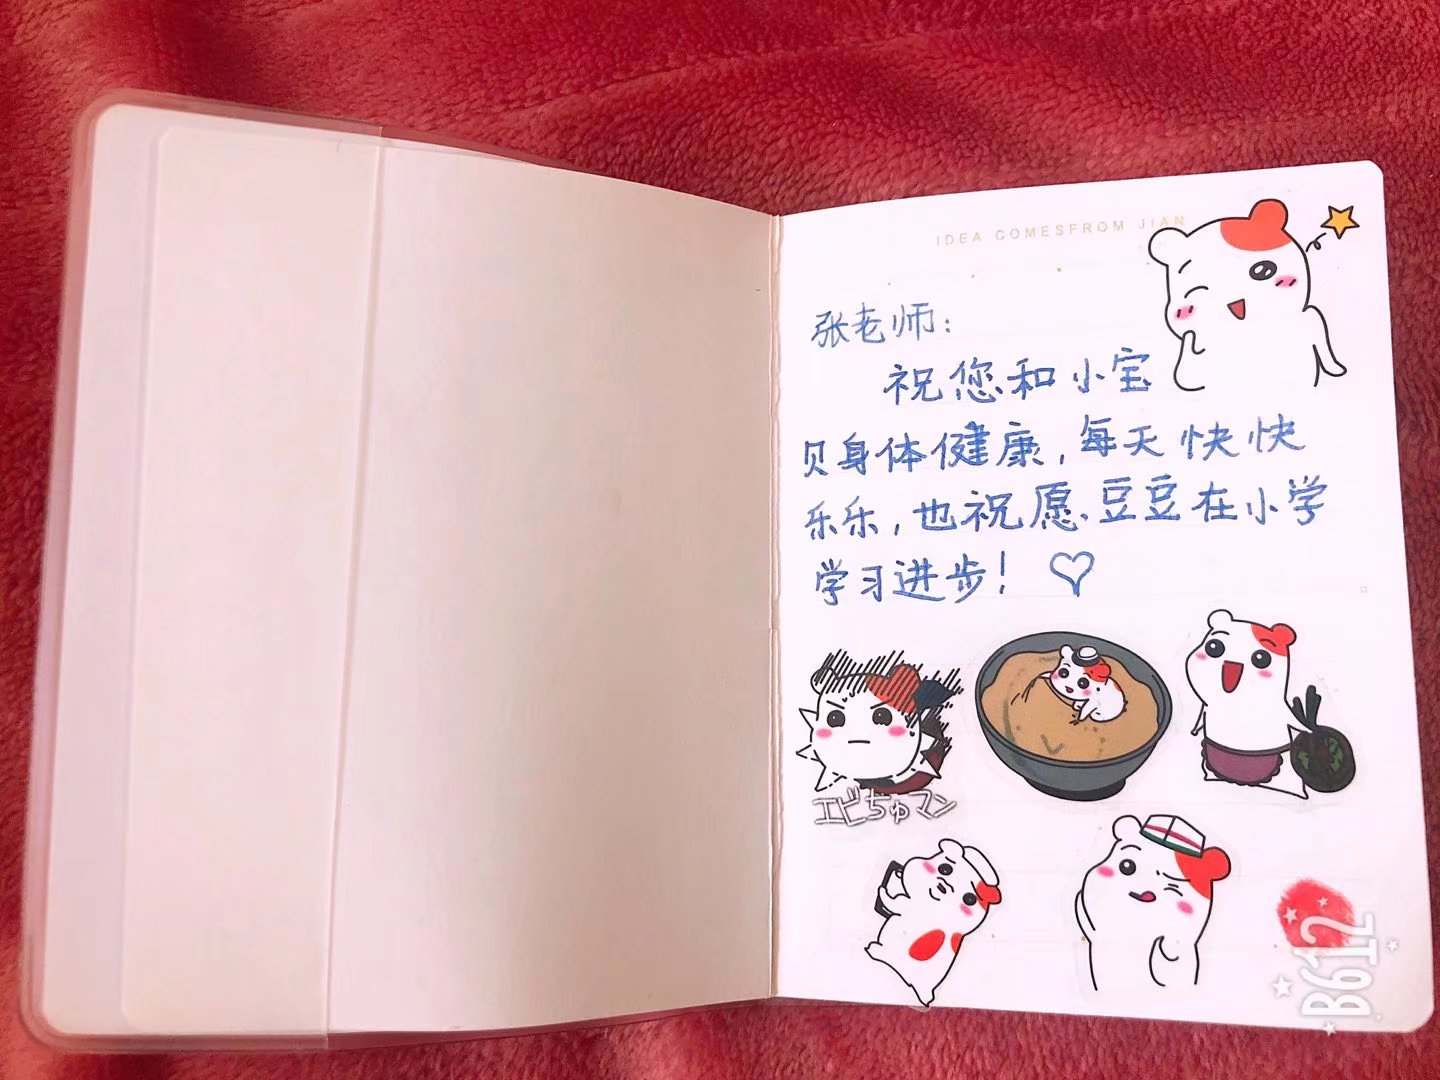 IDEA COMESFROM JIAN
张老师：
祝您和小宝
贝身体健康，每天快快
乐乐，也祝愿豆豆在小学
学习进步！♡
エビちゅマン
B612